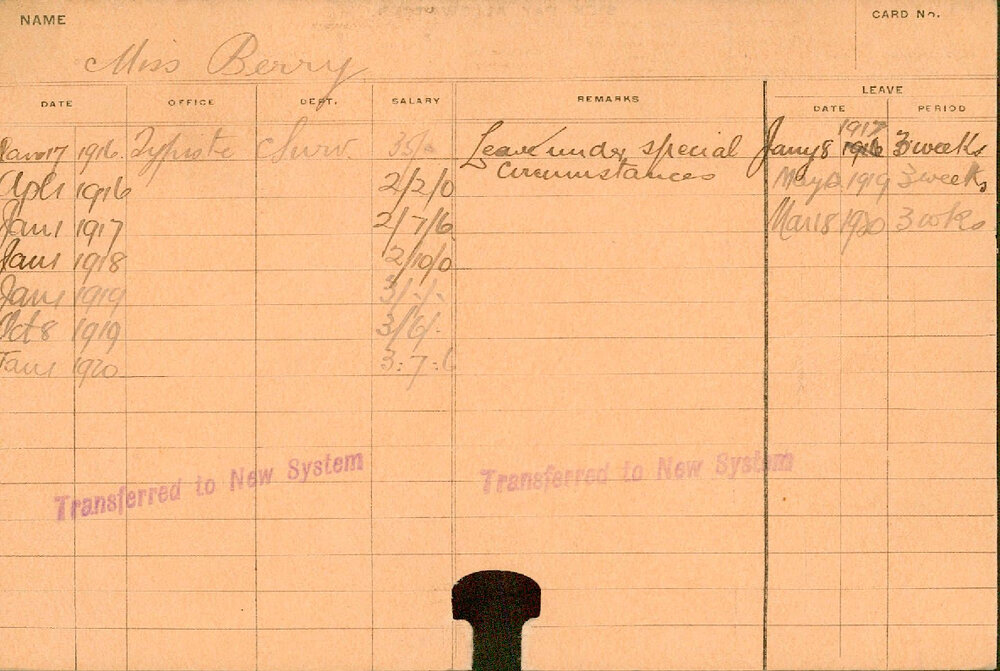 NAME
CARD No.
Miss Berry
LEAVE
DATE OFFICE DEPT. SALARY REMARKS DATE PERIOD
1917
Jan 17 1916. Typiste Surv. 35/- Leave under special Jany 8 1916 3 weeks
circumstances
Apl 1 1916 2/2/0 May 1919 3 weeks
Jan 1 1917 2/7/6 Mar 18 1920 3 wks
Jan 1 1918 2/10/0
Jany 1 1919 3/-/-
Oct 8 1919 3/6/-
Jan 1 1920 3:7:6
Transferred to New System
Transferred to New System